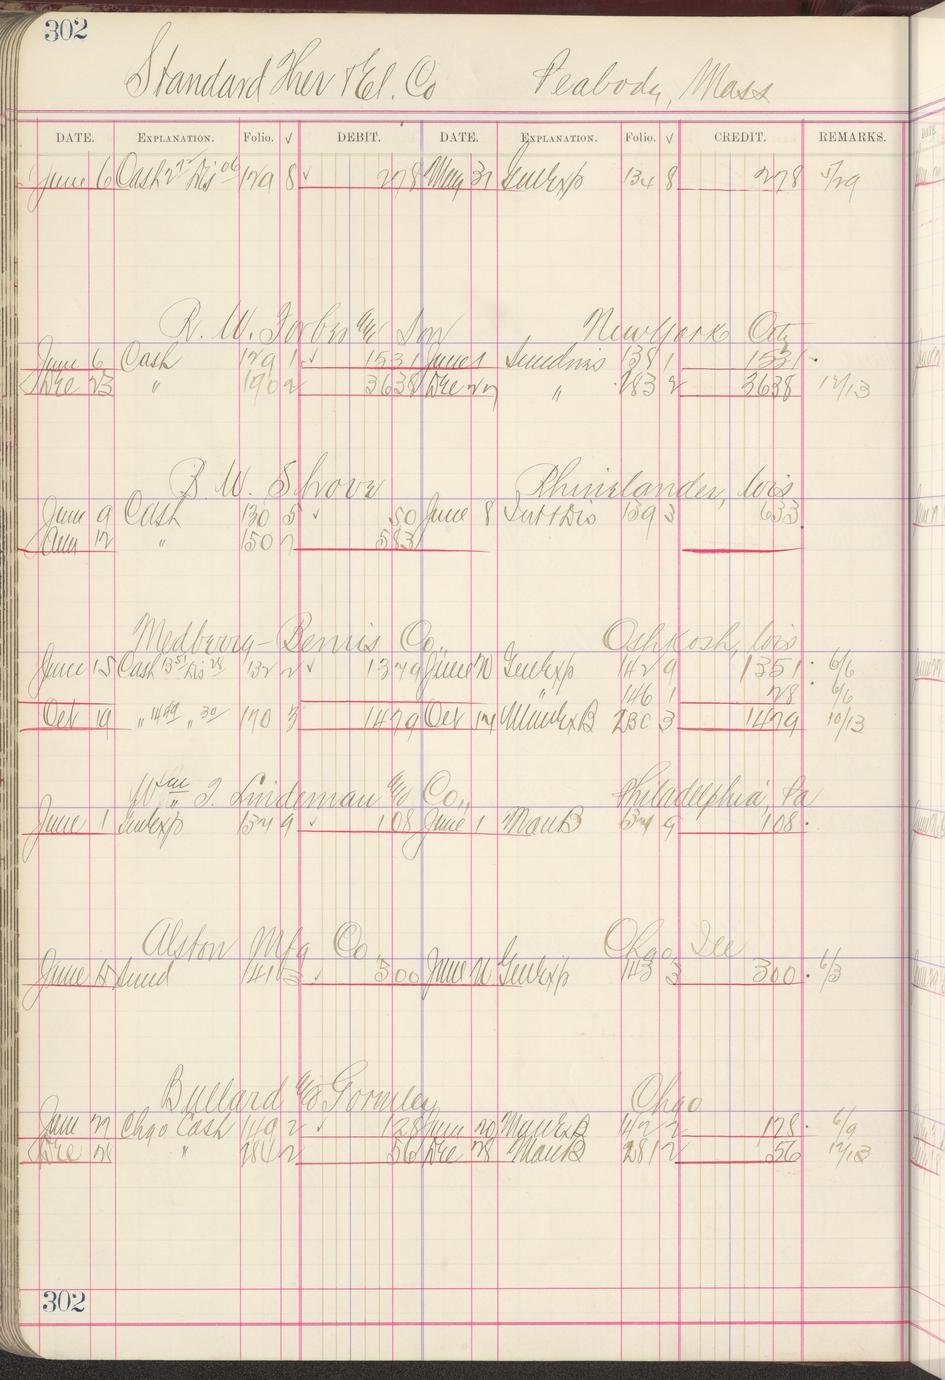 302
Standard Ther & El. Co Peabody, Mass
DATE. EXPLANATION. Folio. √ DEBIT. DATE. EXPLANATION. Folio. √ CREDIT. REMARKS.
June 6 Cash 2 72 Dis 06 129 8 √ 278 May 31 GenExp 134 8 278 5/29
R. W. Forbes & Son New York City
June 6 Cash 129 1 √ 1531 June 1 Sundries 138 1 1531
Dec 23 " 190 2 3638 Dec 22 " 283 2 3638 12/13
B. W. Shove Rhinelander, Wis
June 9 Cash 130 5 √ 50 June 8 Int & Dis 139 3 633
Aug 12 " 150 2 583
Medberry-Bemis Co., Oshkosh, Wis
June 15 Cash 13 51 Dis 28 132 2 √ 1379 June 10 GenExp 142 9 1351 6/6
" 146 1 28 6/6
Oct 19 " 14 49 " 30 170 3 1479 Oct 14 ManExB 230 3 1479 10/13
Wm J. Lindeman & Co., Philadelphia, Pa
June 1 GenExp 134 9 √ 108 June 1 ManB 134 9 108
Alston Mfg Co Chgo Ill
June 15 Sund 141 3 √ 300 June 11 GenExp 143 3 300 6/3
Bullard & Gormley Chgo
June 29 Chgo Cash 149 2 √ 128 June 20 ManExB 142 2 128 6/9
Dec 28 " 284 2 56 Dec 28 ManB 281 2 56 12/13
302